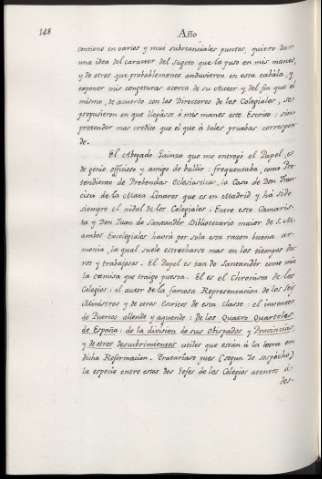 148
Año
contiene en varios y mui substanciales puntos, quiero dar
una idea del caracter del Sugeto que lo puso en mis manos,
y de otros que probablemente anduvieron en esta cabàla, y
exponer mis conjeturas acerca de su Autor y del fin que el
mismo, de acuerdo con los Directores de los Colegiales, se
propusieron en que llegàse à mis manos este Escrito: sin
pretender mas credito que el que à tales pruebas correspon-
de.
El Abogado Tainza que me entregó el Papel, es
de genio officioso y amigo de bullir: frequentaba, como Pre-
tendiente de Prebendas Eclesiasticas, la Casa de Don Fran-
cisco de la Mata Linares que es en Madrid y há sido
siempre el nidal de los Colegiales: Entre este Camaris-
ta y Don Juan de Santandèr Bibliotecario maior de S.M.
ambos Excolegiales havrà por sola esta razon buena ar-
monia, la qual suele estrecharse mas en los tiempos du-
ros y trabajosos. El Papel es tan de Santandèr como mia
la camisa que traigo puesta. El es el Chronista de los
Colegios: el autor de la famosa Representacion de los Seis
Ministros y de otros Escritos de esta Classe: el inventor
de Puertos allende y aquende: de los Quatro Quarteles
de España: de la division de sus Obispados y Provincias,
y de otros descubrimientos utiles que estàn à la letra en
dicha Reformacion. Trataríase pues (segun Yo sospècho)
la especie entre estos dos Gefes de los Colegios acerca à
des-